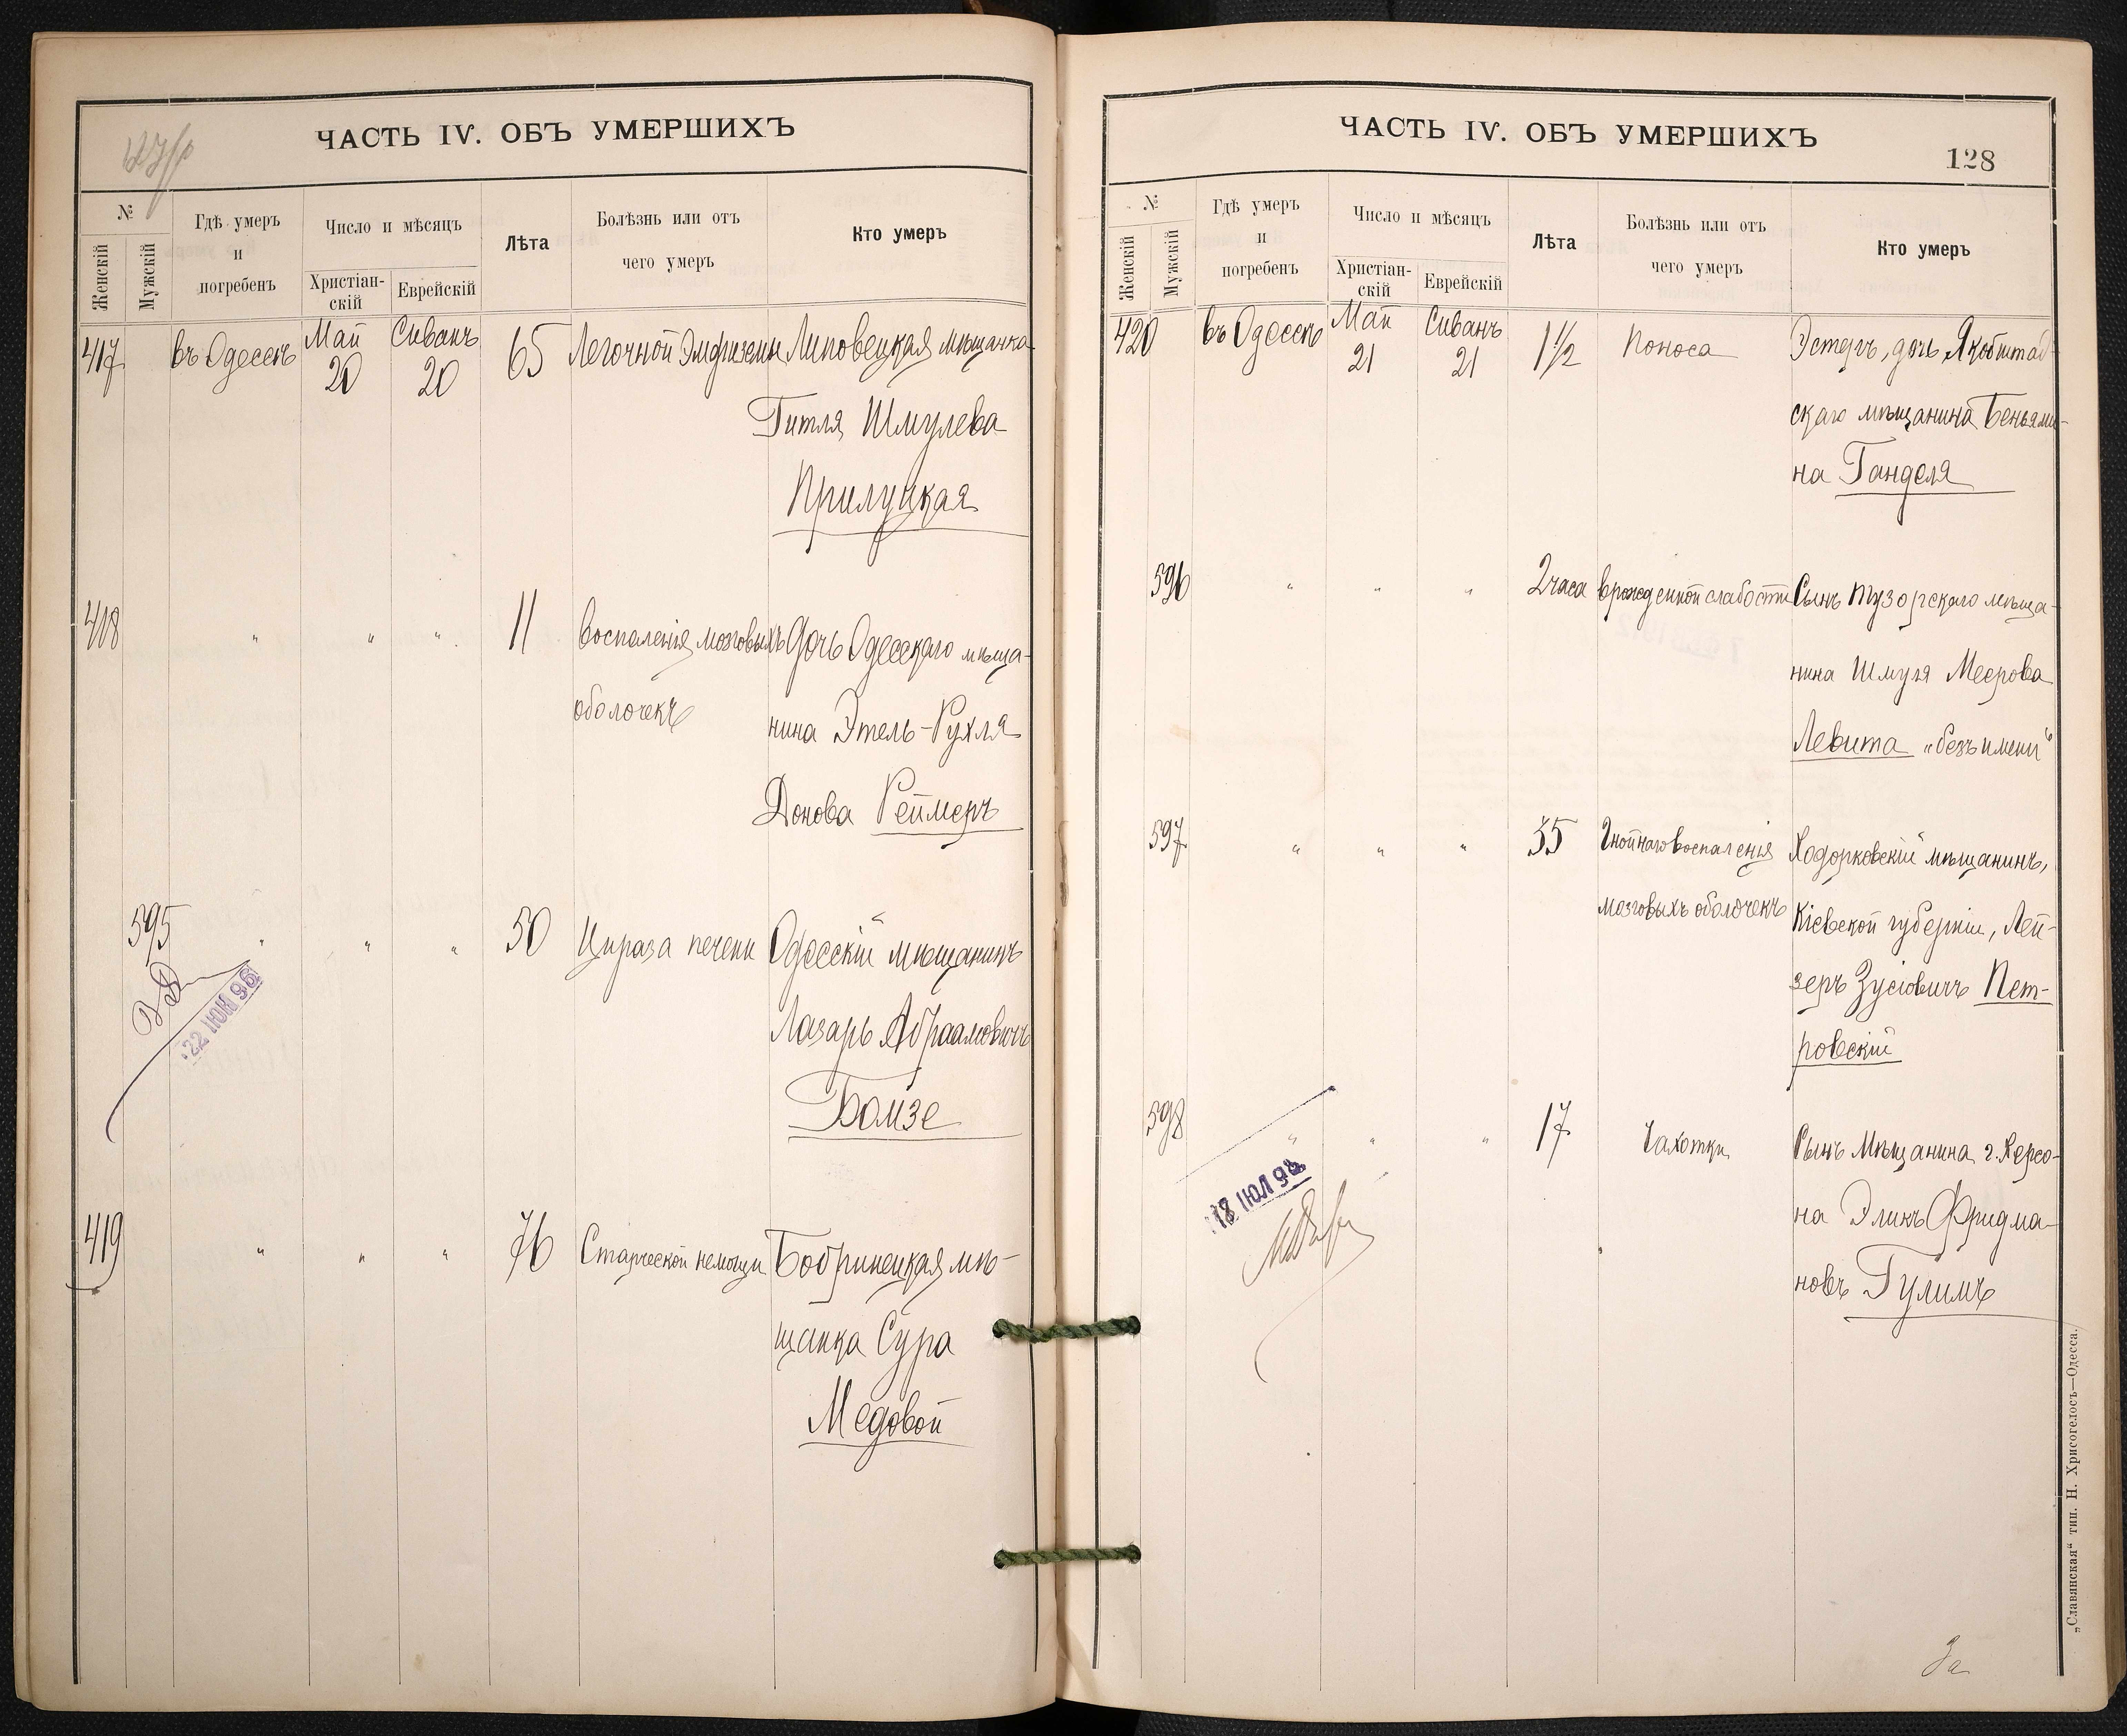 ЧАСТЬ IV. ОБЪ УМЕРШИХЪ
№
Женскій
Мужскій
Гдѣ умеръ
и
погребенъ
Число и мѣсяцъ
Христіан-
скій
Еврейскій
Лѣта
Болѣзнь или отъ
чего умеръ
Кто умеръ
417 въ Одессѣ Май 20 Сиванъ 20 65 Легочной Эмфиземы Липовецкая мѣщанка
Гитля Шмулева
Прилуцкая
418 " " " 11 Воспаленія мозговыхъ Дочь Одесскаго мѣща-
оболочекъ нина Этель-Рухля
Донова Реймеръ
595 " " " 50 Цироза печени Одесскій мѣщанинъ
22 ІЮН 96
Лазарь Абрамовичъ
Бомзе
419 " " " 76 Старческой немощи Бобринецкая мѣ-
щанка Сура
Медовой
ЧАСТЬ IV. ОБЪ УМЕРШИХЪ
128
№
Женскій
Мужскій
Гдѣ умеръ
и
погребенъ
Число и мѣсяцъ
Христіан-
скій
Еврейскій
Лѣта
Болѣзнь или отъ
чего умеръ
Кто умеръ
420 въ Одессѣ Май 21 Сиванъ 21 1½ Поноса Эстеръ, дочь Якобштад-
скаго мѣщанина Беньями-
на Ганделя
596 " " " 2 часа врожденной слабости Сынъ Тузорскаго мѣща-
нина Шмуля Меерова
Левита „безъ имени“
597 " " " 35 Гнойнаго воспаленія Ходорковскій мѣщанинъ,
мозговыхъ оболочекъ Кіевской губерніи, Лей-
зеръ Зусіовичъ Пет-
ровскій
598 " " " 17 Чахотки Сынъ Мѣщанина г. Херсо-
18 ІЮЛ 98
на Эликъ Фридма-
новъ Гулимъ
За
„Славянская“ тип. Н. Хрисогелосъ—Одесса.